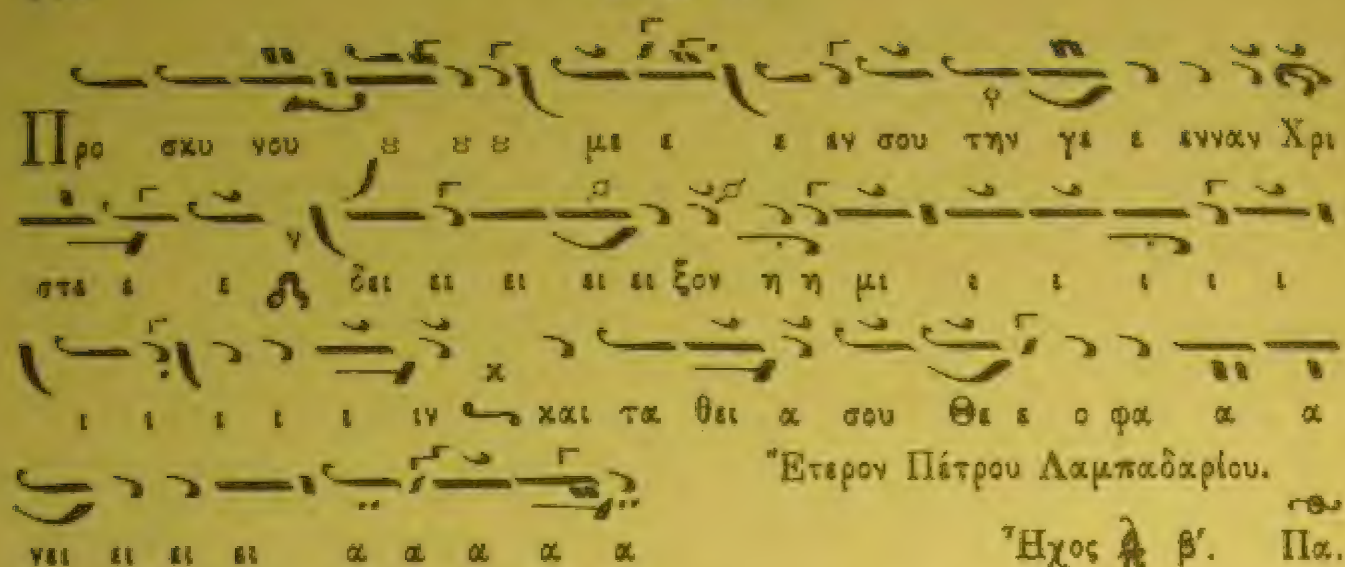 Προ σκυ νου ȣ ȣ ȣ με ε ε εν σου την γε ε ενναν Χρι
στε ε ε δει ει ει ει ει ει ξον η η μι ι ι ι ι ι
ι ι ι ι ι ιν και τα θει α σου Θε ε ο φα α α
νει ει ει ει α α α α α
Ἕτερον Πέτρου Λαμπαδαρίου.
Ἦχος β΄. Πα.